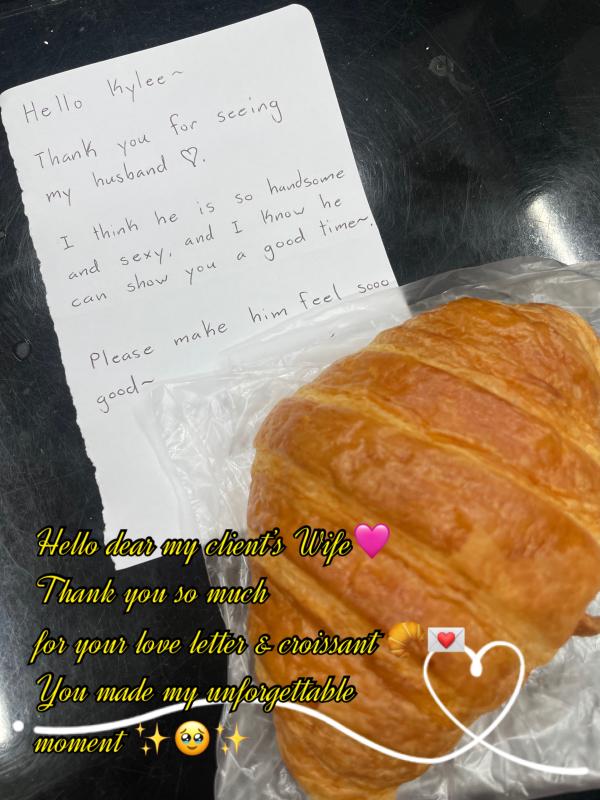 Hello Kylee~
Thank you for seeing
my husband ♡.
I think he is so handsome
and sexy, and I know he
can show you a good time~.
Please make him feel sooo
good~
Hello dear my client's Wife🩷
Thank you so much
for your love letter & croissant 🥐💌
You made my unforgettable
moment ✨🥹✨